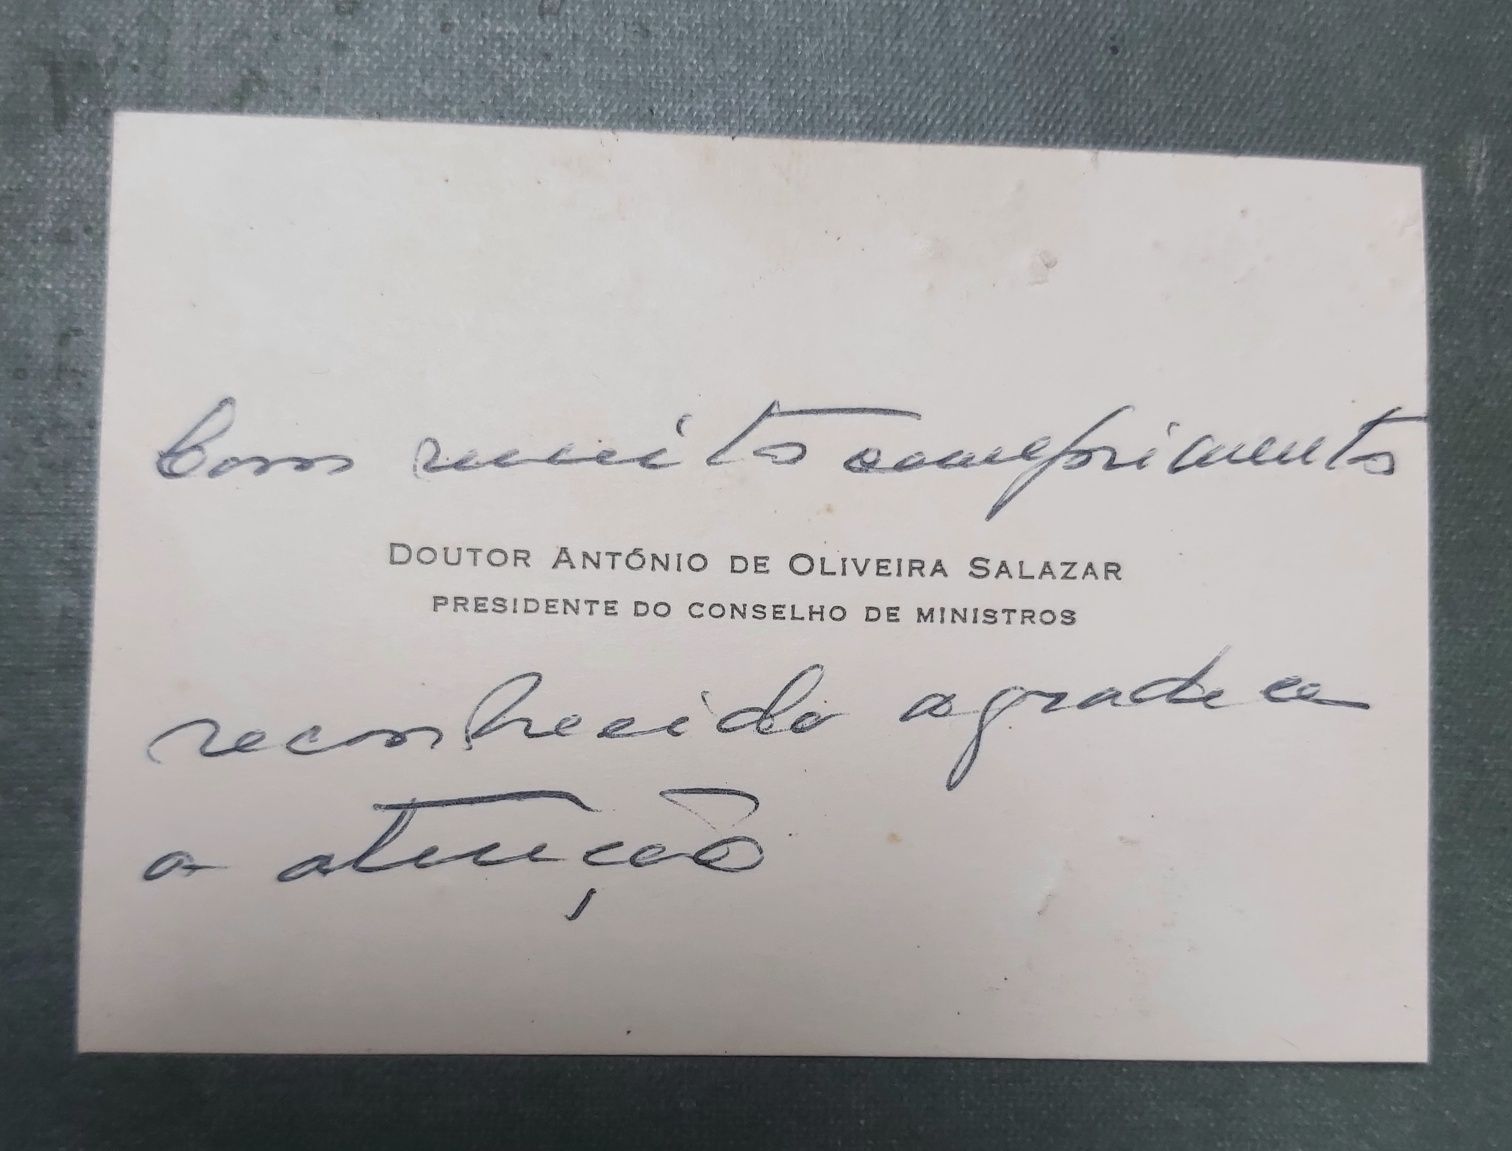 Com muito cumprimento
DOUTOR ANTÓNIO DE OLIVEIRA SALAZAR
PRESIDENTE DO CONSELHO DE MINISTROS
reconhecido agradece
a atenção